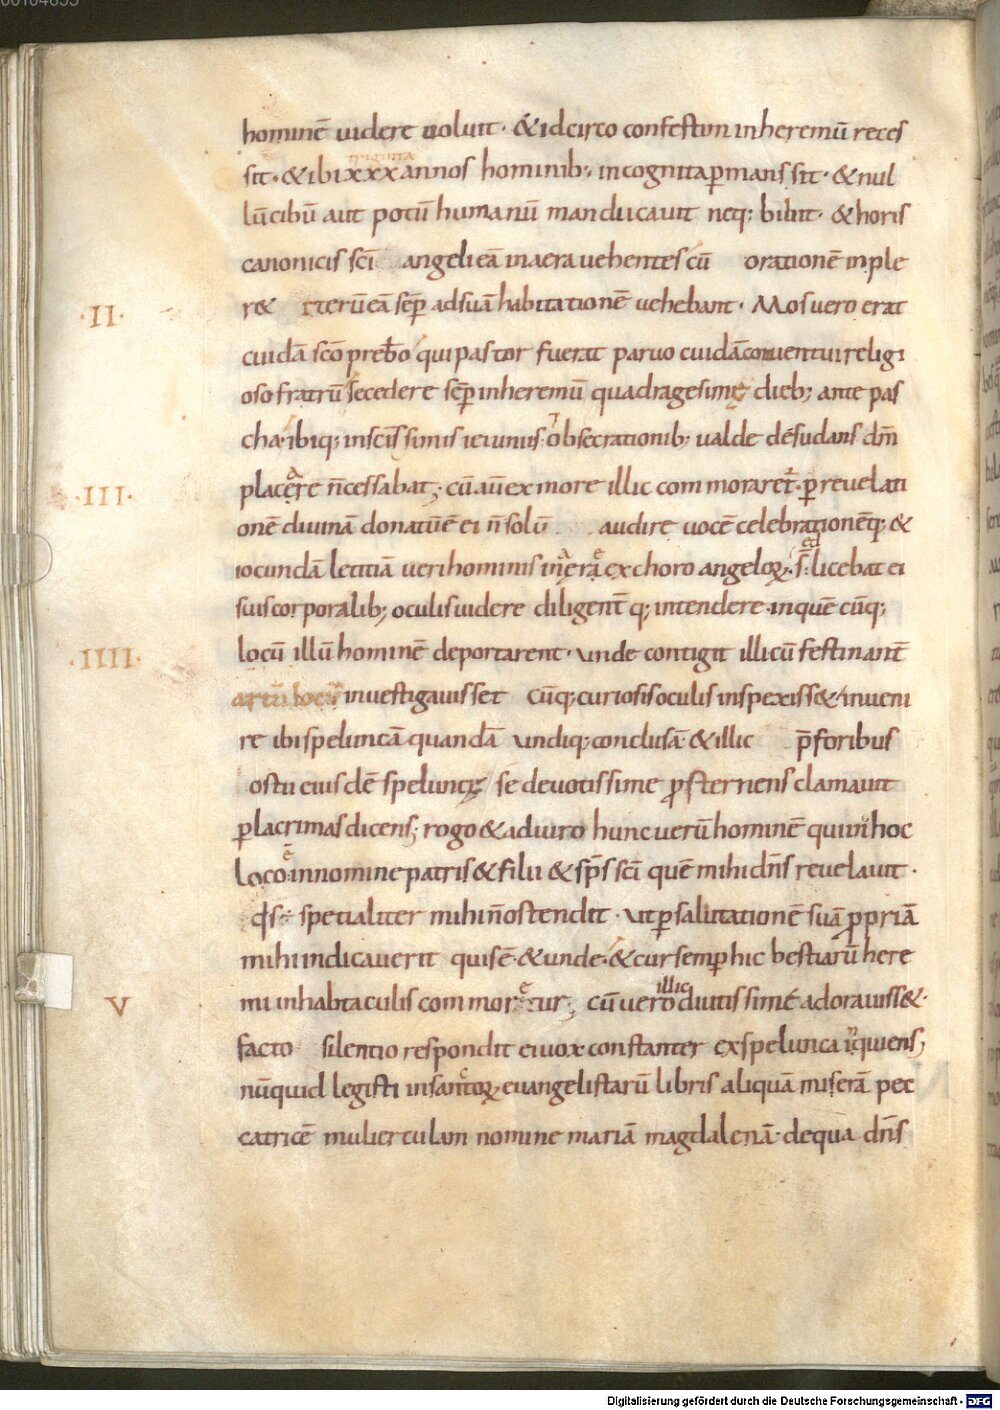 hominē uidere uoluit · & idcirco confestim in heremū reces
sit · & ibi xxx annos hominib; incognita ꝑmansit · & nul
lū cibū aut potū humanū manducauit neq; bibit · & horis
canonicis sc̄i angeli eā in aera uehentes cū orationē inple
r& iterū eā sēp ad suā habitationē uehebant · Mos uero erat
·II·
cuidā sc̄o prēb̄o qui pastor fuerat paruo cuidā conuentui religi
oso fratrū secedere sēp in heremū quadragesimę dieb; ante pas
cha · ibiq; inscissimis ieiuniis obsecrationib; ualde désudans dm̄
placere n̄ cessabat; cū aū ex more illic commoraret̄ · ꝑ reuelati
·III·
onē diuinā donatū ē ei n̄ solū audire uocē celebrationēq; &
iocundā letitiā ueri hominis in aera ex choro angeloꝝ · sed licebat ei
suis corporalib; oculis uidere diligent̄q; intendere in quē cūq;
locū illū hominē deportarent · unde contigit illi cū festinant̄
·IIII·
inuestigauisset cūq; curiosis oculis inspexiss& inueni
re ibi speluncā quandā undiq; conclusā & illic p̄ foribus
ostii eiusdē speluncę se deuotissime ꝓsternens clamauit
ꝑ lacrimas dicens; rogo & adiuro hunc uerū hominē qui in hoc
loco ē in nomine patris & filii & sp̄s sc̄i quē mihi dn̄s reuelauit ·
specialiter mihi n̄ ostendit · ut ꝑ salutationē suā ꝓpriā
mihi indicauerit quis ē · & unde · & cur semꝑ hic bestiarū here
mi inhabitaculis commoretur; cū uero illic diutissime adorauiss& ·
V
facto silentio respondit ei uox constanter ex spelunca inquiens;
nūquid legisti in sanctoꝝ euangelistarū libris aliquā miserā pec
catricē mulierculam nomine mariā magdalenā · de qua dn̄s
Digitalisierung gefördert durch die Deutsche Forschungsgemeinschaft - DFG